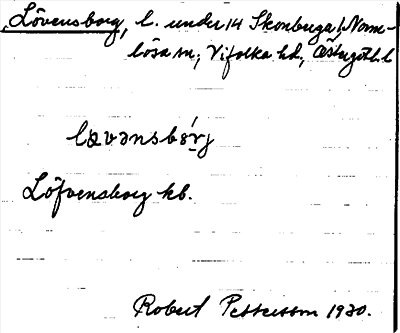 Lövensborg, l. under 14 Skonberga, Norm-
lösa sn, Vifolka hd, Östergötl. l
lævənsbórj
Löfvensborg kb.
Robert Pettersson 1930.